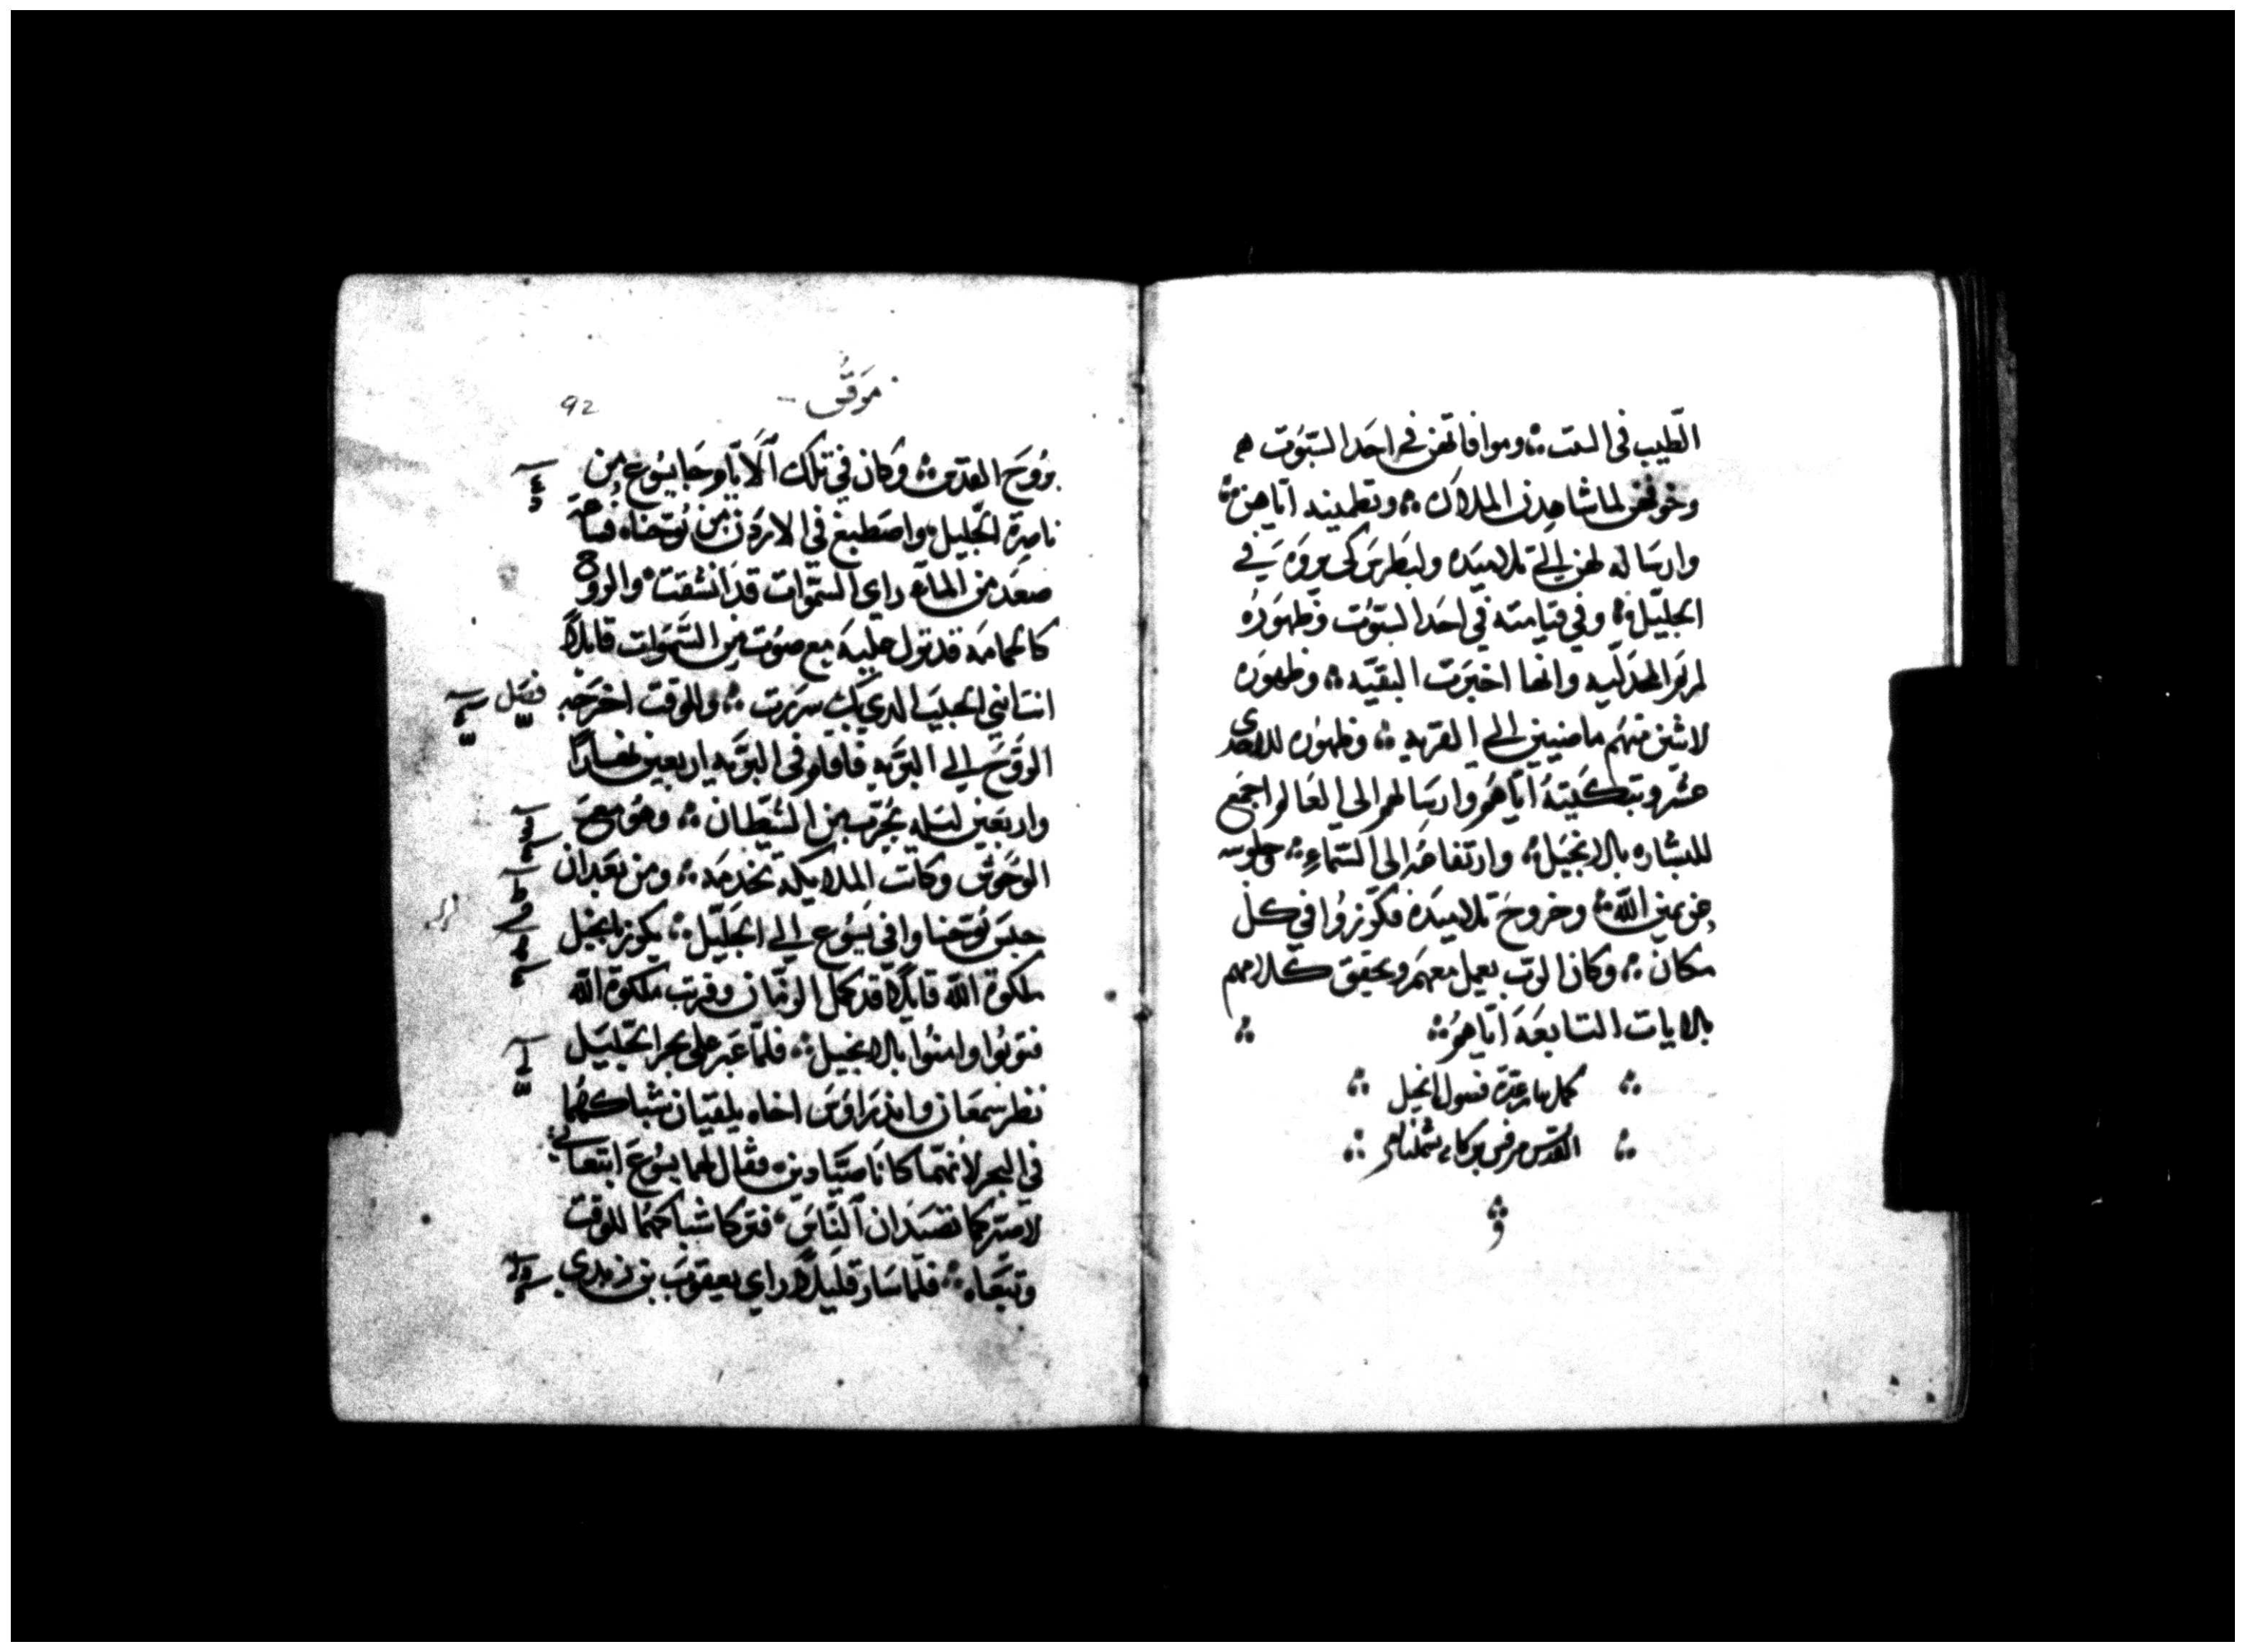 الطيب في السبت ؞ وموافاتهن في احد السبوت
وخوفهن لما شاهدن الملاك ؞ وتطمينه اياهن ؞
وارساله لهن الي تلاميده ولبطرس كي يروه في
الجليل ؞ وفي قيامته في احد السبوت وظهوره
لمريم المجدليه وانها اخبرت البقيه ؞ وظهوره
لاثنين منهم ماضيين الي القريه ؞ وظهوره للاحدي
عشر وتبكيته اياهم وارسالهم الي العالم اجمع
للبشاره بالانجيل ؞ وارتفاعه الي السماء ؞ وجلوسه
عن يمين الله ؞ وخروج تلاميده فكرزوا في كل
مكان ؞ وكان الرب يعمل معهم ويحقق كلامهم
بالايات التابعه اياهم ؞
كمل فصول انجيل
القديس مرقس
مرقس
92
بروح القدس ؞ وكان في تلك الايام جا يسوع من
ناصرة الجليل واصطبغ في الاردن من يوحنا فساعة
صعد من الماء راي السموات قد انشقت والروح
كالحمامه قد نزل عليه مع صوت من السموات قايلا
انت ابني الحبيب الدي بك سررت ؞ وللوقت اخرجه
فصل
الروح الي البريه فاقام في البريه اربعين نهارا
واربعين ليله يجرب من الشيطان ؞ وهو مع
الوحوش وكانت الملايكه تخدمه ؞ ومن بعد ان
حبس يوحنا وافي يسوع الي الجليل ؞ يكرز بانجيل
ملكوة الله قايلا قد كمل الزمان وقربت ملكوة الله
فتوبوا وامنوا بالانجيل ؞ فلما عبر علي بحر الجليل
نظر سمعان واندراوس اخاه يلقيان شباكهما
في البحر لانهما كانا صيادين ؞ فقال لهما يسوع اتبعاني
لاصيركما تصيدان الناس ؞ فتركا شباكهما للوقت
وتبعاه ؞ فلما سار قليلا راي يعقوب بن زبدي